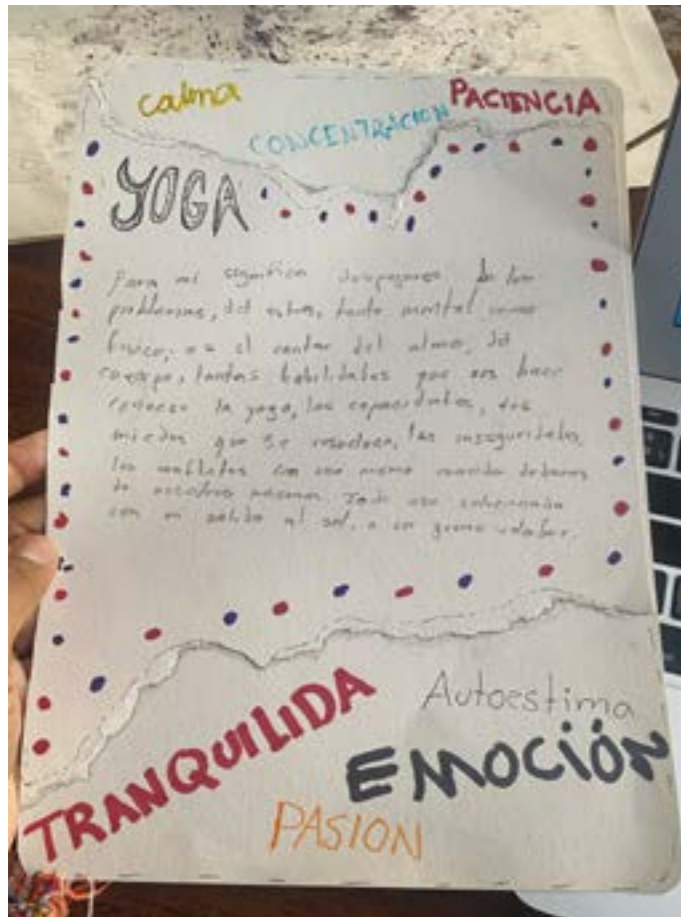 calma
PACIENCIA
CONCENTRACION
YOGA
Para mi significa de los
problemas, del estres, tanto mental como
fisico, es el cantar del alma, del
cuerpo, tantas habilidades que nos hace
conocer la yoga, las capacidades, los
miedos que se resuelven, las inseguridades,
los conflictos con uno mismo
de nosotros mismos todo eso
con un saludo al sol, o un
TRANQUILIDA
Autoestima
EMOCIÓN
PASION